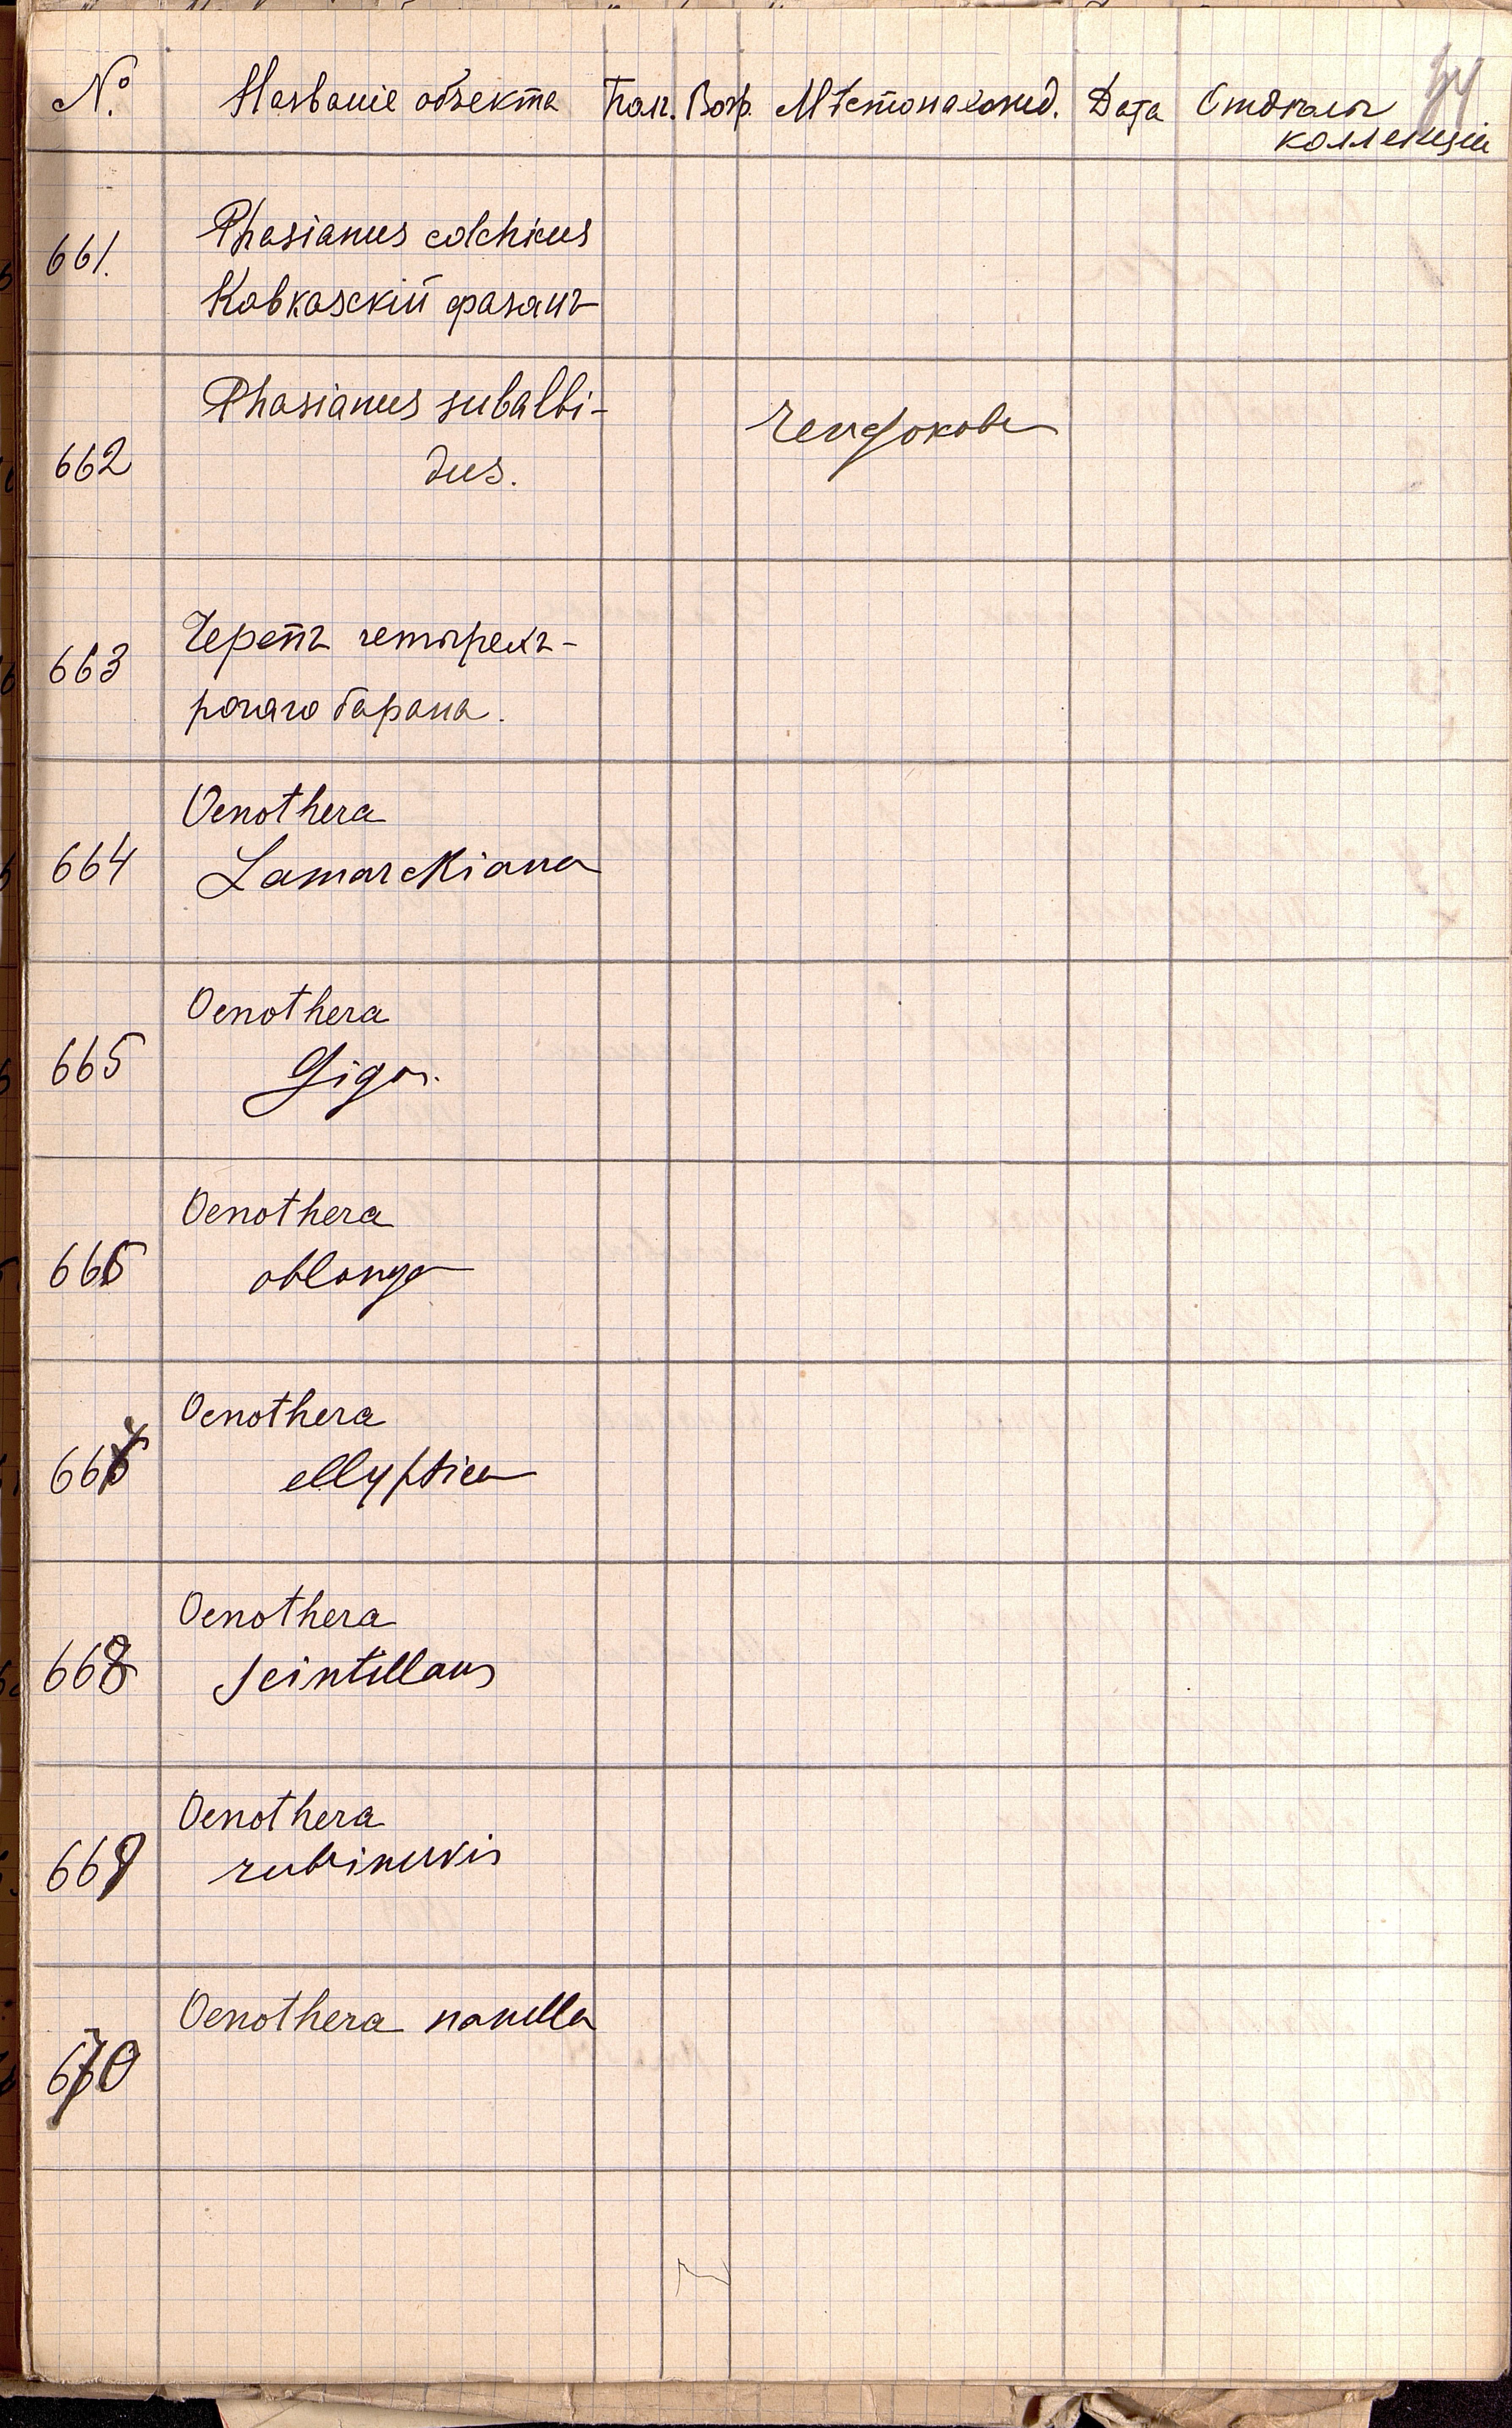 № Названіе объекта Пол. Возр. Мѣстонахожд. Дата Отдѣлы
коллекціи
661. Phasianus colchicus
Кавказскій фазанъ
Phasianus subalbi-
662 dus.
663 Черепъ четырехъ-
рогаго барана.
Oenothera
664 Lamarckiana
Oenothera
665 Gigas.
Oenothera
666 oblonga
Oenothera
667 ellyptica
Oenothera
668 scintillans
Oenothera
669 rubrinervis
Oenothera nanella
670